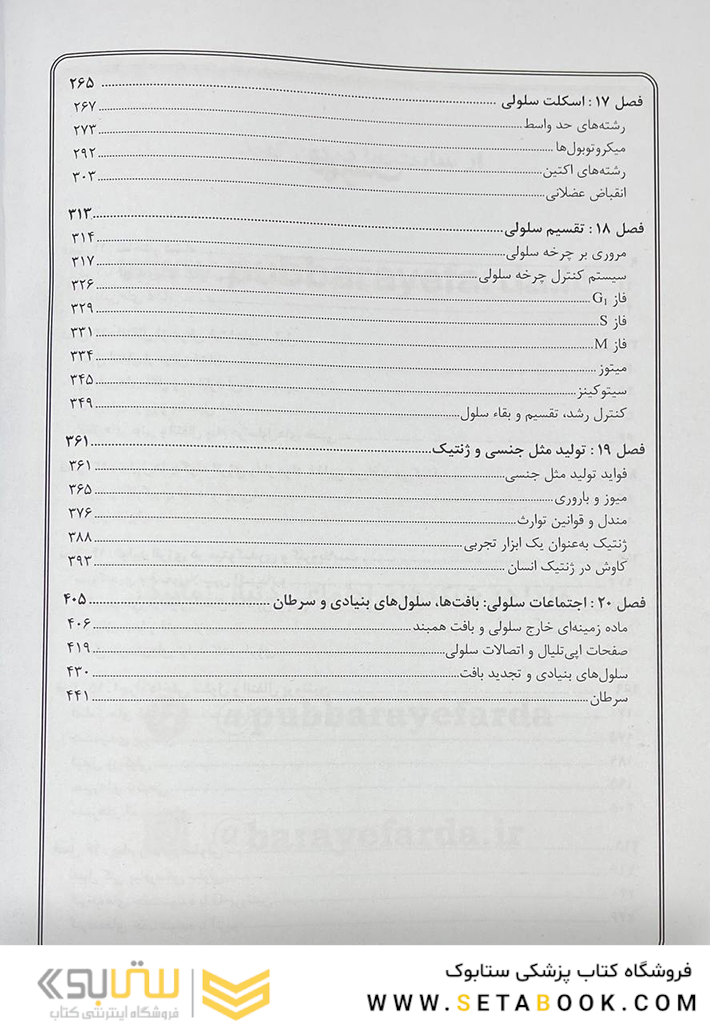 فصل ۱۷: اسکلت سلولی ۲۶۵
رشته‌های حد واسط ۲۶۷
میکروتوبول‌ها ۲۷۳
رشته‌های اکتین ۲۹۲
انقباض عضلانی ۳۰۳
فصل ۱۸: تقسیم سلولی ۳۱۳
مروری بر چرخه سلولی ۳۱۴
سیستم کنترل چرخه سلولی ۳۱۷
فاز G₁ ۳۲۶
فاز S ۳۲۹
فاز M ۳۳۱
میتوز ۳۳۴
سیتوکینز ۳۴۵
کنترل رشد، تقسیم و بقاء سلول ۳۴۹
فصل ۱۹: تولید مثل جنسی و ژنتیک ۳۶۱
فواید تولید مثل جنسی ۳۶۱
میوز و باروری ۳۶۵
مندل و قوانین توارث ۳۷۶
ژنتیک به‌عنوان یک ابزار تجربی ۳۸۸
کاوش در ژنتیک انسان ۳۹۳
فصل ۲۰: اجتماعات سلولی: بافت‌ها، سلول‌های بنیادی و سرطان ۴۰۵
ماده زمینه‌ای خارج سلولی و بافت همبند ۴۰۶
صفحات اپی‌تلیال و اتصالات سلولی ۴۱۹
سلول‌های بنیادی و تجدید بافت ۴۳۰
سرطان ۴۴۱
@pubbarayefarda
@barayefarda.ir
فروشگاه کتاب پزشکی ستابوک
WWW.SETABOOK.COM
ستابوک
فروشگاه اینترنتی کتاب